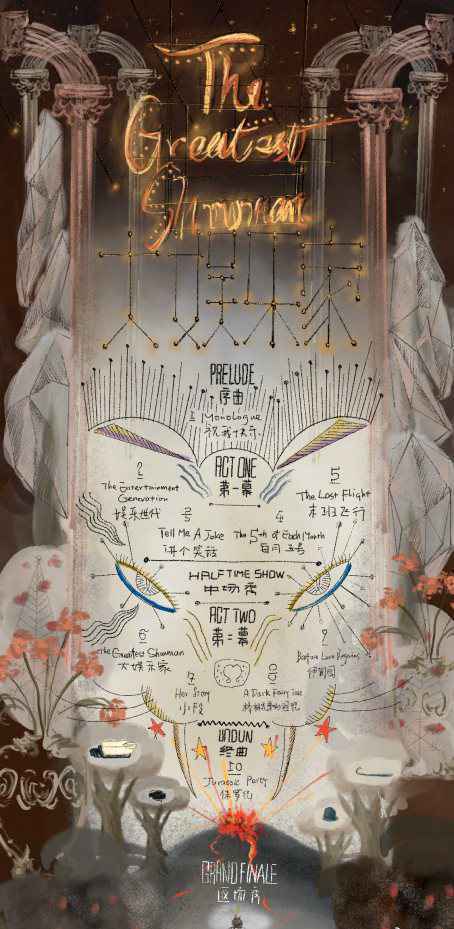 The
Greatest
Showman
大娱乐家
PRELUDE
序曲
1 Monologue
祝我快乐
ACT ONE
第一幕
2
The Entertainment
Generation
娱乐世代
5
The Last Flight
末班飞行
3
4
Tell Me A Joke
The 5th of Each Month
讲个笑话
每月五号
HALF TIME SHOW
中场秀
ACT TWO
第二幕
6
The Greatest Showman
大娱乐家
9
Before Love Begins
伊甸园
7
8
Her Story
A Dark Fairy Tale
终曲
10
Jurassic Party
侏罗纪
GRAND FINALE